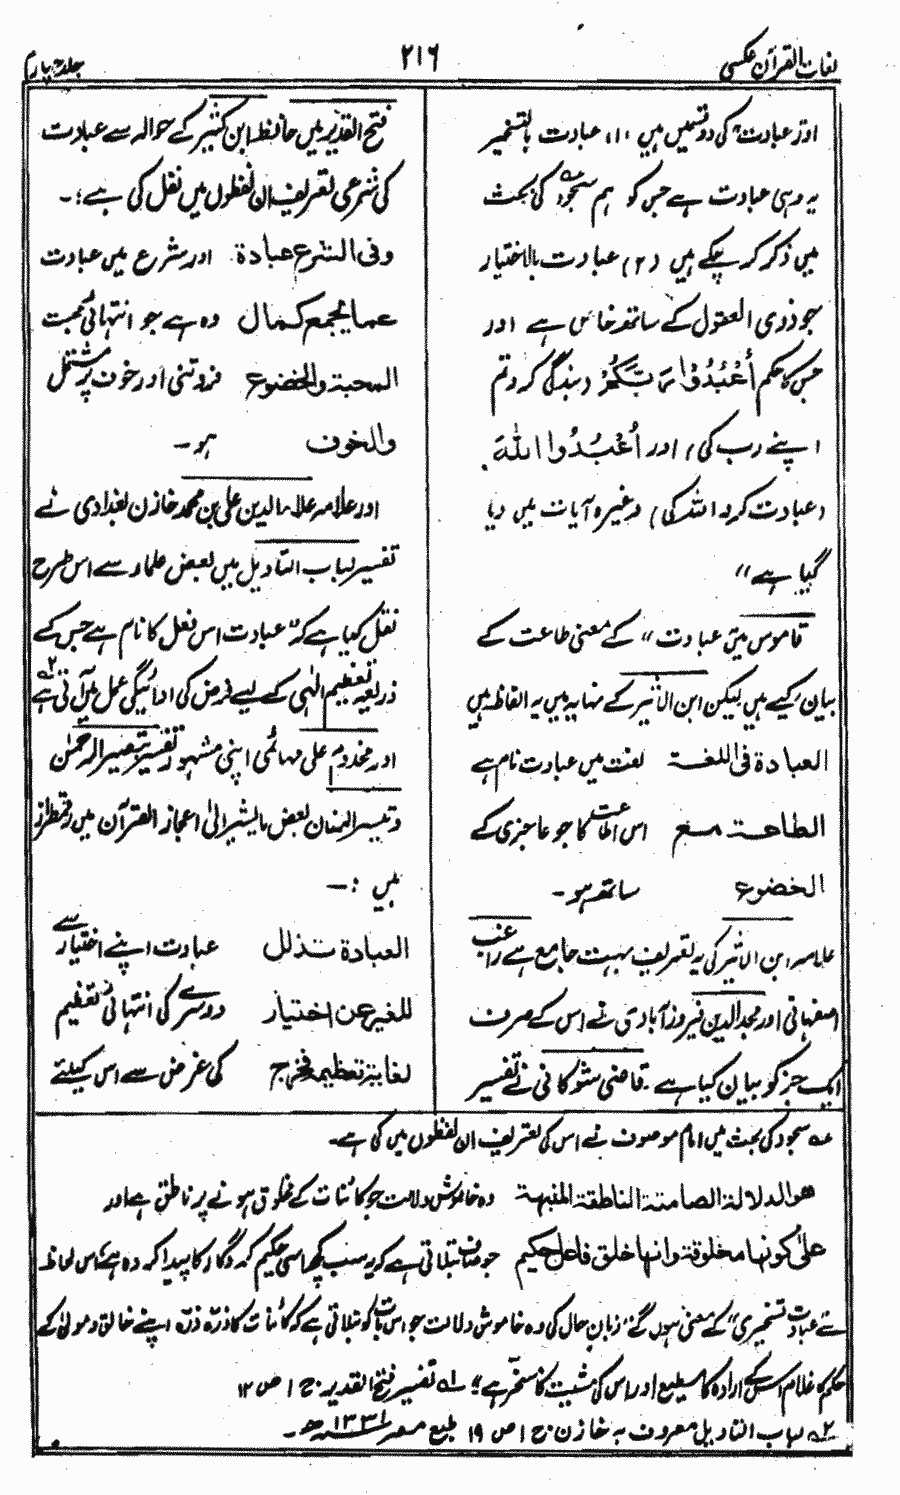 لغات القرآن عکسی
٢١٦
جلد چہارم
اور عبادت کی دو قسمیں ہیں (۱) عبادت بالتسخیر
یہ وہی عبادت ہے جس کو ہم سجود کی بحث
میں ذکر کر چکے ہیں (۲) عبادت بالاختیار
جو ذوی العقول کے ساتھ خاص ہے اور
جس کا حکم اُعْبُدُوْا رَبَّكُمْ (بندگی کرو تم
اپنے رب کی) اور اُعْبُدُوا اللّٰهَ
(عبادت کرو اللہ کی) وغیرہ آیات میں دیا
گیا ہے"
قاموس میں عبادت کے معنی طاعت کے
بیان کیے ہیں لیکن ابن الاثیر کے نہایہ میں یہ الفاظ ہیں
العبادة فی اللغة لغت میں عبادت نام ہے
الطاعة مع اس اطاعت کا جو عاجزی کے
الخضوع ساتھ ہو۔
علامہ ابن الاثیر کی یہ تعریف بہت جامع ہے راغب
اصفہانی اور مجد الدین فیروز آبادی نے اس کے صرف
ایک جز کو بیان کیا ہے۔ قاضی شوکانی نے تفسیر
فتح القدیر میں حافظ ابن کثیر کے حوالہ سے عبادت
کی شرعی تعریف ان لفظوں میں نقل کی ہے:۔
وفی الشرع عبادة اور شرع میں عبادت
عما یجمع کمال وہ ہے جو انتہائی محبت
المحبة والخضوع فروتنی اور خوف پر مشتمل
والخوف ہو۔
اور علامہ علاء الدین علی بن محمد خازن بغدادی نے
تفسیر لباب التاویل میں بعض علماء سے اس طرح
نقل کیا ہے کہ "عبادت اس فعل کا نام ہے جس کے
ذریعہ تعظیم الٰہی کے لیے فرض کی ادائیگی عمل میں آتی ہے ٢
اور مخدوم علی مہائمی اپنی مشہور تفسیر تبصیر الرحمٰن
وتیسیر المنان بعض ما یشیر الیٰ اعجاز القرآن میں رقمطراز
ہیں :۔
العبادة تذلل عبادت اپنے اختیار سے
للغیر عن اختیار دوسرے کی انتہائی تعظیم
لغایة تعظیمه فخرج کی غرض سے اس کیلئے
عہ سجود کی بحث میں امام موصوف نے اس کی تعریف ان لفظوں میں کی ہے۔
هو الدلالة الصامتة الناطقة المنبهة وہ خاموش دلالت جو کائنات کے مخلوق ہونے پر ناطق ہے اور
علیٰ کونها مخلوقة وانها خلق فاعل حکیم جو صاف بتلاتی ہے کہ یہ سب کچھ اسی حکیم کردگار کا پیدا کردہ ہے، اس لحاظ
سے عبادت تسخیری" کے معنی ہوں گے "زبانِ حال کی وہ خاموش دلالت جو اس بات کو بتلاتی ہے کہ کائنات کا ذرّہ ذرّہ اپنے خالق و مولیٰ کے
حکم کا غلام اس کے ارادہ کا مطیع اور اس کی مشیت کا مسخر ہے" ؎۱ تفسیر فتح القدیر۔ ج ۱ ص ۱۲
٢ لباب التاویل معروف بہ خازن۔ ج ۱ ص ۱۹ طبع مصر ۱۳۳۱ھ۔